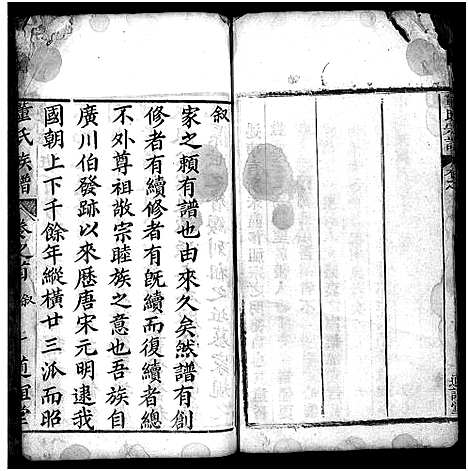 叙
家之賴有譜也由來久矣然譜有創
修者有續修者有旣續而復續者總
不外尊祖敬宗睦族之意也吾族自
廣川伯發跡以來歷唐宋元明逮我
國朝上下千餘年縱橫廿三派而昭
董氏族譜 卷之首 叙 一 道誼堂